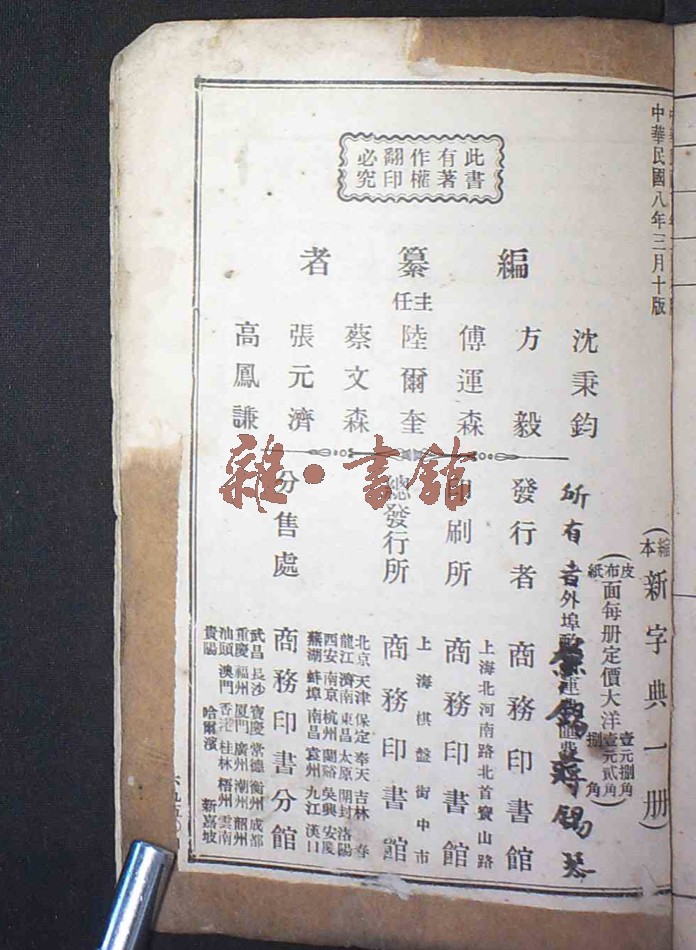 中華民國八年三月十版
(縮本新字典一册)
(皮布紙面每册定價大洋壹元捌角壹元貳角捌角)
此書有著作權翻印必究
編纂者
主任
沈秉鈞
方毅
傅運森
陸爾奎
蔡文森
張元濟
高鳳謙
所有者
外埠
蔣錫琴
發行者
商務印書館
印刷所
上海北河南路北首寶山路
商務印書館
總發行所
上海棋盤街中市
商務印書館
分售處
北京 天津 保定 奉天 吉林
龍江 濟南 東昌 太原 開封 洛陽
西安 南京 杭州 蘭谿 吳興 安慶
蕪湖 蚌埠 南昌 袁州 九江 漢口
商務印書分館
武昌 長沙 寶慶 常德 衡州 成都
重慶 福州 厦門 廣州 潮州 韶州
汕頭 澳門 香港 桂林 梧州 雲南
貴陽 哈爾濱 新嘉坡
雜·書館